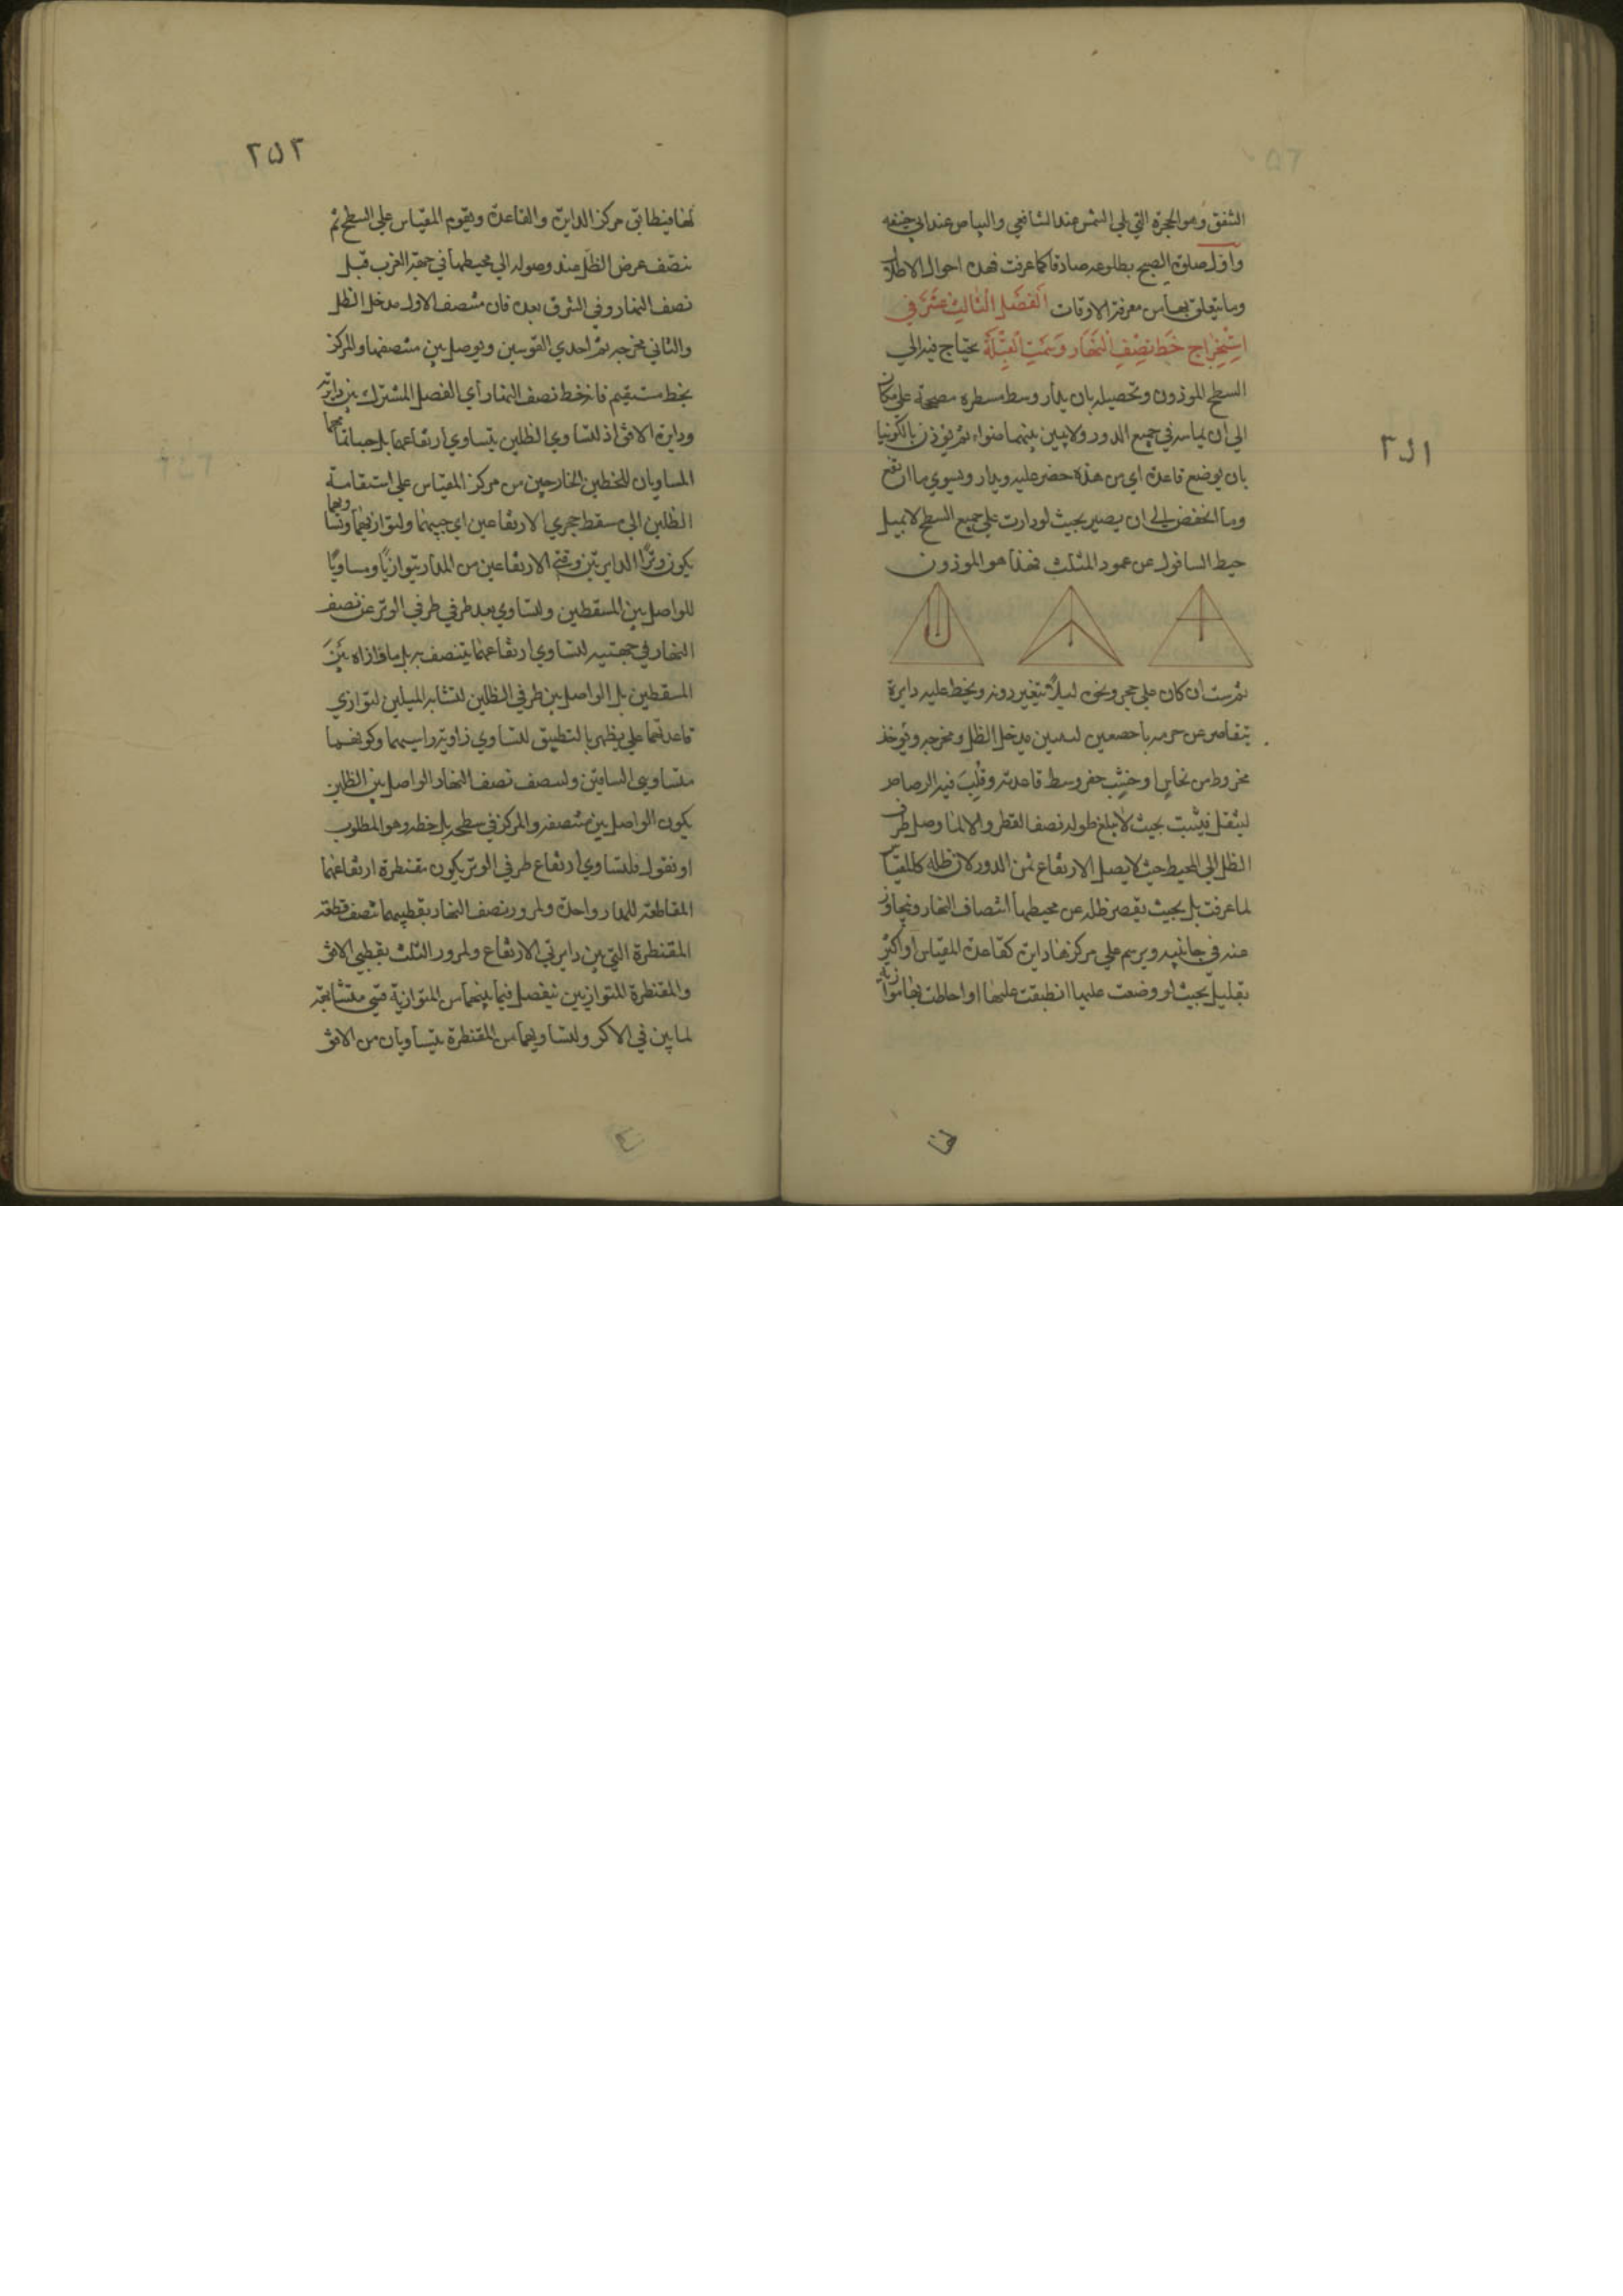 ٢٥١
الشفق وهو الحمرة التي تلي الشمس عند الشافعي والبياض عند ابي حنيفه
واول صلوة الصبح بطلوعه صادقا كما عرفت فهذه احوال الاظلال
وما يتعلق بها من معرفة الاوقات الفصل الثالث عشر في
استخراج خط نصف النهار وسمت القبلة يحتاج فيه الي
السطح الموزون وتحصيله بان يدار وسط مسطره مصححة علي مكان
الي ان يماسه في جميع الدور ولا يبين بينهما ضواء ثم يوزن بالكونيا
بان يوضع قاعدة اي من هذه حضر عليه ويدار ويسوي ما ارتفع
وما انخفض الي ان يصير بحيث لو دارت علي جميع السطح لا يميل
خيط الشاقول عن عمود المثلث فهذا هو الموزون
ثم رست ان كان علي حجر ونحوه ليلا تتغير دونه ويخط عليه دايرة
يتقاصر عن حرمه باصبعين لـ مدخل الظل ومخرجه ويؤخذ
مخروط من نحاس او خشب حفر وسط قاعدته وقلب فيه الرصاص
ليثقل فيثبت بحيث لا يبلغ طوله نصف القطر والا لما وصل طرف
الظل الي المحيط حيث لا يصل الارتفاع ثمن الدور لان ظله كالمقياس
لما عرفت بل بحيث يقصر ظله عن محيطها انتصاف النهار ويجاوز
عنه في جانبيه ويرسم علي مركزها دايرة كقاعدة المقياس او اكثر
بقليل بحيث لو وضعت عليها انطبقت عليها او احاطت بها موازية
٢٥٢
لها فينطابق مركز الدايرة والقاعدة ويقوم المقياس علي السطح ثم
ننصف عرض الظل عند وصوله الي محيطها في جهة الغرب قبل
نصف النهار وفي الشرق بعده فان منتصف الاول مدخل الظل
والثاني مخرجه ثم احدي القوسين ويوصل بين منتصفها والمركز
بخط مستقيم فانه خط نصف النهار اي الفصل المشترك بين دايرته
ودايرة الافق اذ لتساوي الظلين يتساوي ارتفاعهما بل جيباتماهما
المساويان للخطين الخارجين من مركز المقياس علي استقامة
الظلين الي مسقط حجري الارتفاعين اي جيبهما ولتوازيهما وتساويهما
يكون وترا الدايرتين وقتي الارتفاعين من المدار يتوازيا ومساويا
للواصل بين المسقطين ولتساوي بعد طرفي طرفي الوتر عن نصف
النهار في جهتيه لتساوي ارتفاعهما يتنصف به بل ما وازاه بين
المسقطين بل الواصل بين طرفي الظلين لتشابه الميلين لتوازي
قاعدتهما علي يظهر بالتطبيق لتساوي زاوية راسيهما وكونهما
متساويي الساقين ولـ نصف النهار الواصل بين الظلين
يكون الواصل بين منتصفه والمركز في سطحه بل خطه وهو المطلوب
او نقول ولتساوي ارتفاع طرفي الوتر يكون مقنطرة ارتفاعهما
المقاطعة للمدار واحدة ولمرور نصف النهار بقطبيهما تنصف قطعة
المقنطرة التي بين دايرتي الارتفاع ولمرور الثلث بقطبي الافق
والمقنطرة المتوازيين تنفصل فيما بينهما من المتوازية قسي متشابهة
لما بين في الاكر ولتساويهما من المقنطرة يتساويان من الافق